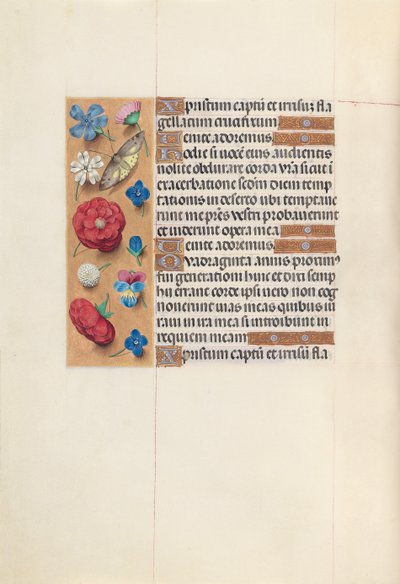 Xpristum captū et irrisuz fla
gellatum crucifixum
Venite adoremus.
Hodie si uocē eius audieritis
nolite obdurare corda vr̄a sicut i
exacerbatione scd̄m diem temp
tationis in deserto ubi temptaue
runt me pr̄es vestri probauerunt
et uiderunt opera mea
Venite adoremus.
Quadraginta annis proxim9
fui generationi huic et dixi semp
hii errant corde ipsi uero non cog
nouerunt uias meas quibus iu
raui in ira mea si introibunt in
requiem meam
Xpristum captū et irrisū fla